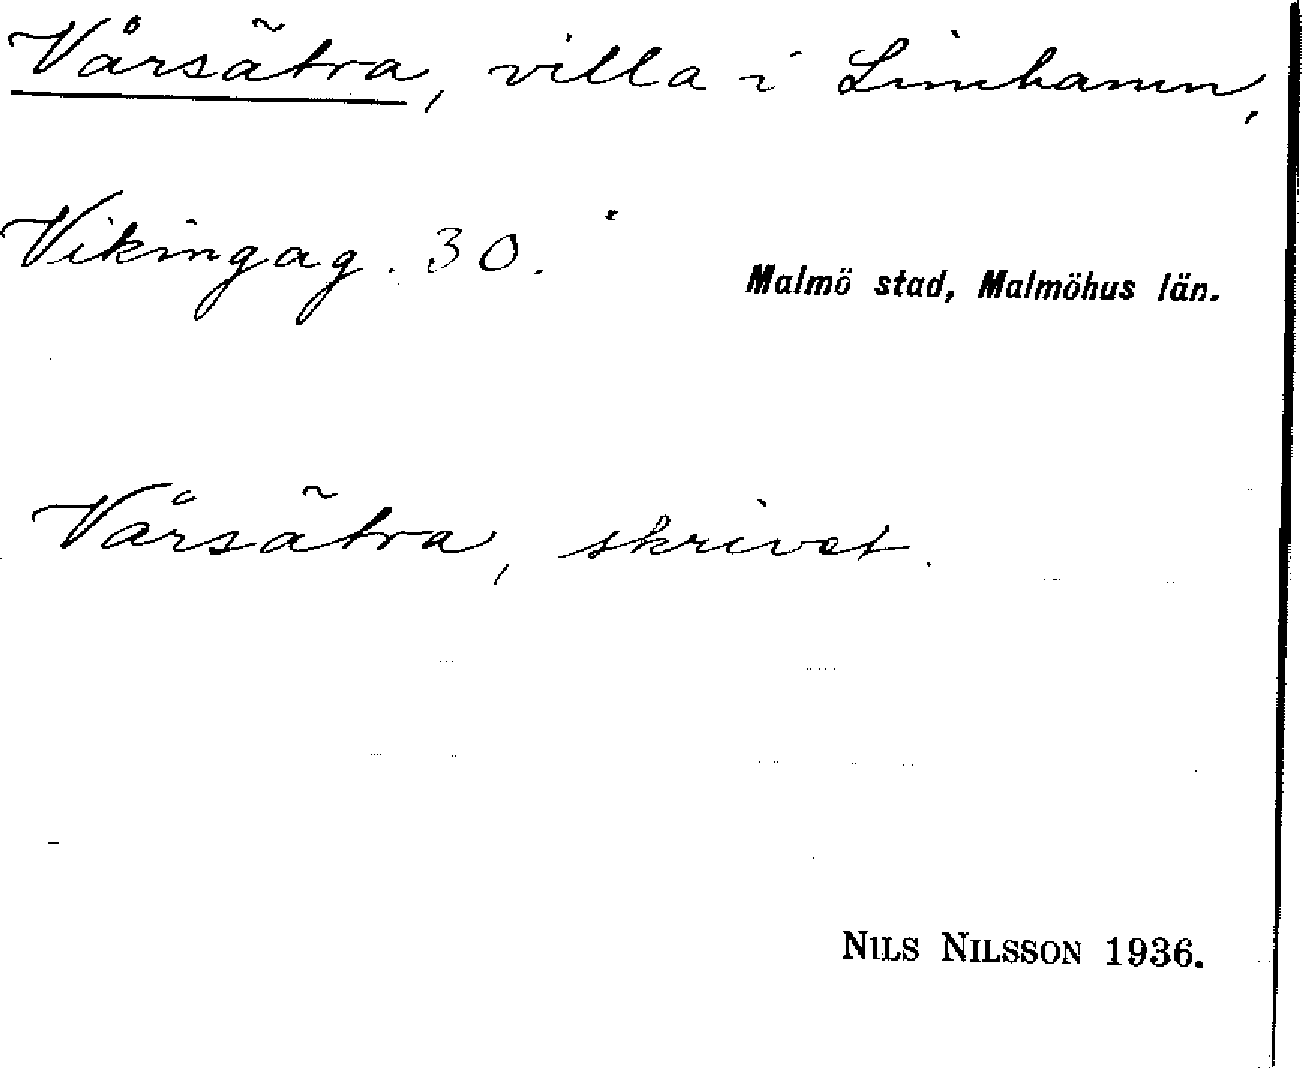 Vårsätra, villa i Limhamn,
Vikingag. 30.
Malmö stad, Malmöhus län.
Vårsätra, skrivet.
NILS NILSSON 1936.